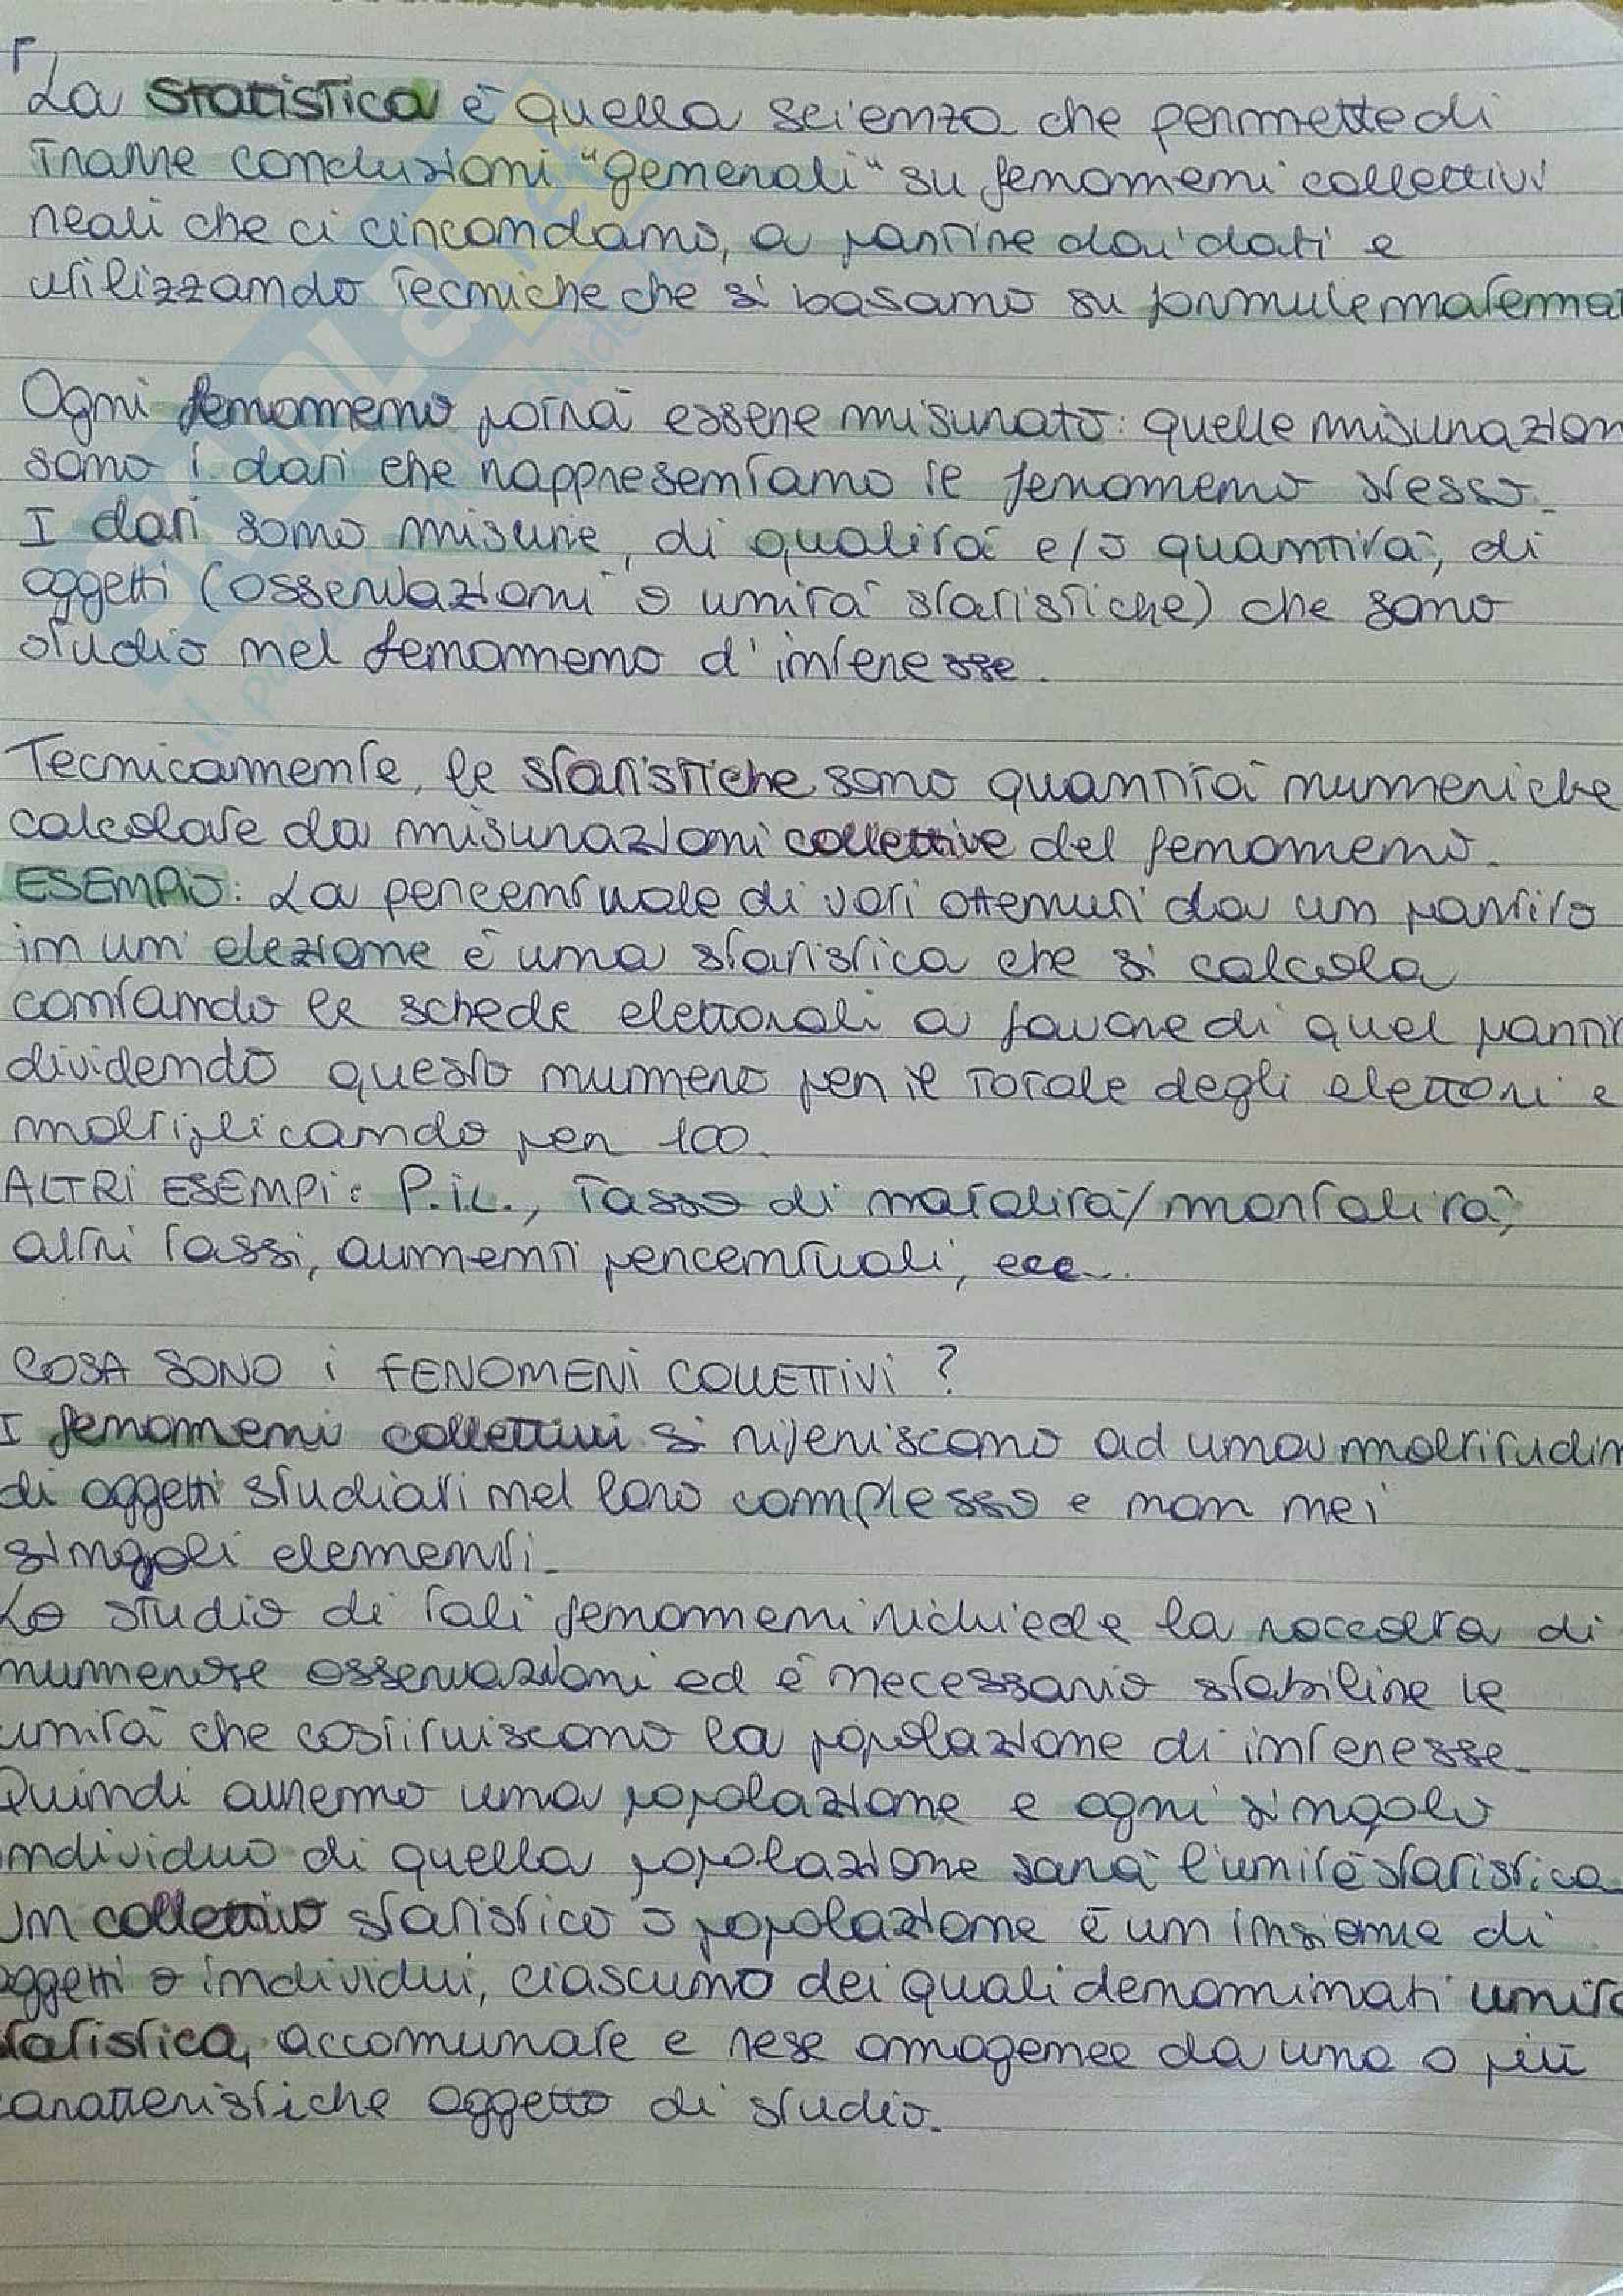 La Statistica è quella scienza che permette di
trarre conclusioni "generali" su fenomeni collettivi
reali che ci circondano, a partire dai dati e
utilizzando tecniche che si basano su formule matema
Ogni fenomeno potrà essere misurato: quelle misurazion
sono i dati che rappresentano il fenomeno stesso.
I dati sono misure, di qualità e/o quantità, di
oggetti (osservazioni o unità statistiche) che sono
studio nel fenomeno d'interesse.
Tecnicamente, le statistiche sono quantità numeriche
calcolate da misurazioni collettive del fenomeno.
ESEMPIO: La percentuale di voti ottenuti da un partito
in un'elezione è una statistica che si calcola
contando le schede elettorali a favore di quel partit
dividendo questo numero per il totale degli elettori e
moltiplicando per 100.
ALTRI ESEMPI: P.i.L., Tasso di natalità/mortalità,
altri tassi, aumenti percentuali, ecc...
COSA SONO i FENOMENI COLLETTIVI?
I fenomeni collettivi si riferiscono ad una moltitudin
di oggetti studiati nel loro complesso e non nei
singoli elementi.
Lo studio di tali fenomeni richiede la raccolta di
numerose osservazioni ed è necessario stabilire le
unità che costituiscono la popolazione di interesse.
Quindi avremo una popolazione e ogni singolo
individuo di quella popolazione sarà l'unità statistica.
Un collettivo statistico o popolazione è un insieme di
oggetti o individui, ciascuno dei quali denominati unità
statistica, accomunate e rese omogenee da una o più
caratteristiche oggetto di studio.